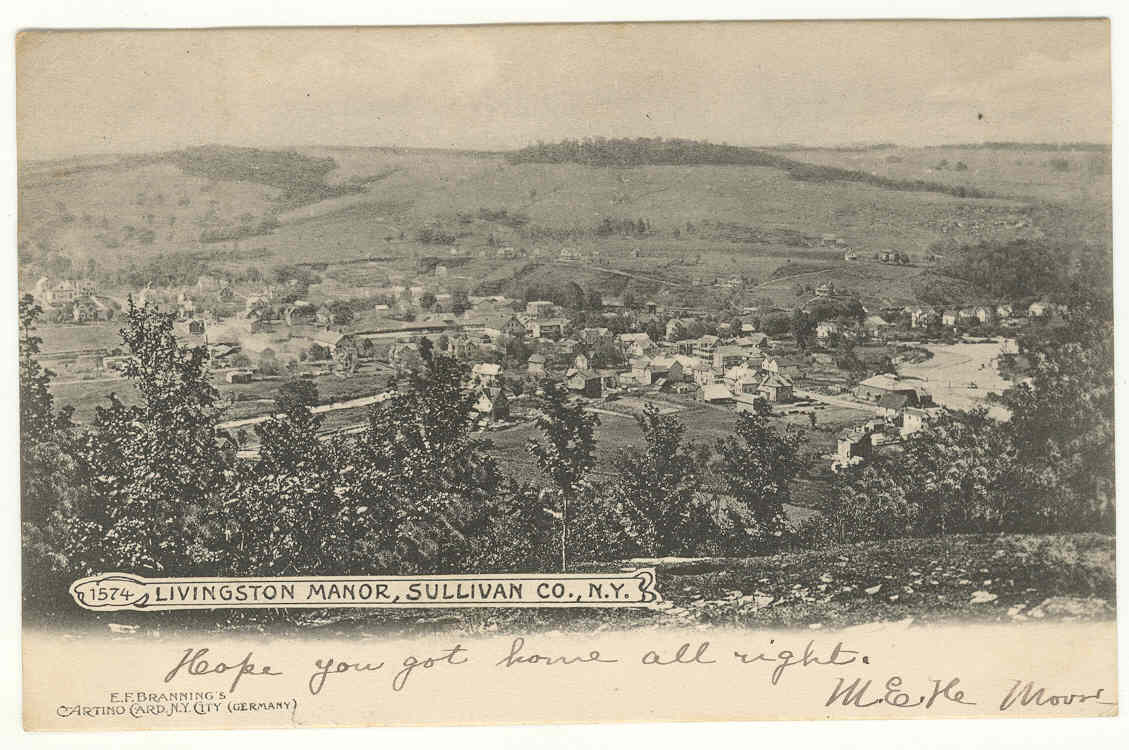 1574 LIVINGSTON MANOR, SULLIVAN CO., N.Y.
Hope you got home all right.
E.F. BRANNING'S
ARTINO CARD, N.Y. CITY (GERMANY)
M.E.